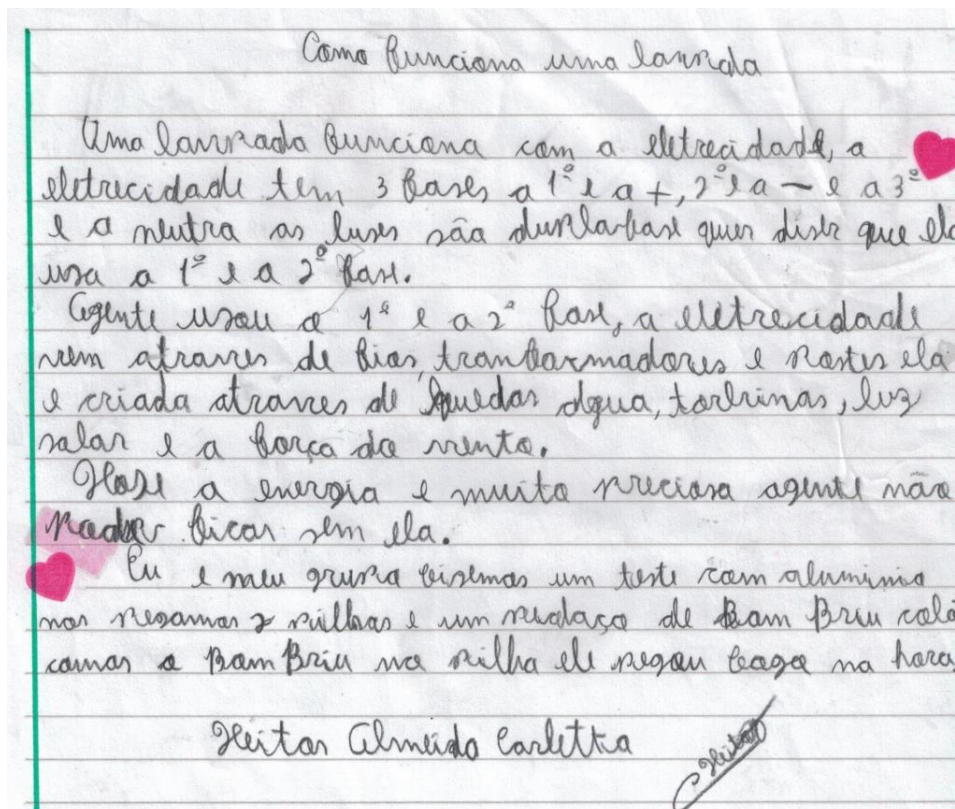 Como funciona uma lampada
Uma lampada funciona com a eletrecidade, a
eletrecidade tem 3 fases a 1º e a +, 2º e a - e a 3º
e a neutra as luses são duplafase quer diser que ela
usa a 1º e a 2º fase.
Agente usou a 1º e a 2º fase, a eletrecidade
vem atraves de fios, tranformadores e postes ela
e criada atraves de quedas dgua, torbinas, luz
solar e a força do vento.
Hoje a energia e muito preciosa agente não
pode ficar sem ela.
Eu e meu grupo fisemos um teste com aluminio
nos pegamos 2 pilhas e um pedaço de Bom Briu colo
camos o Bom Briu na pilha ele pegou fogo na hora,
Heitor Almeida
Heitor